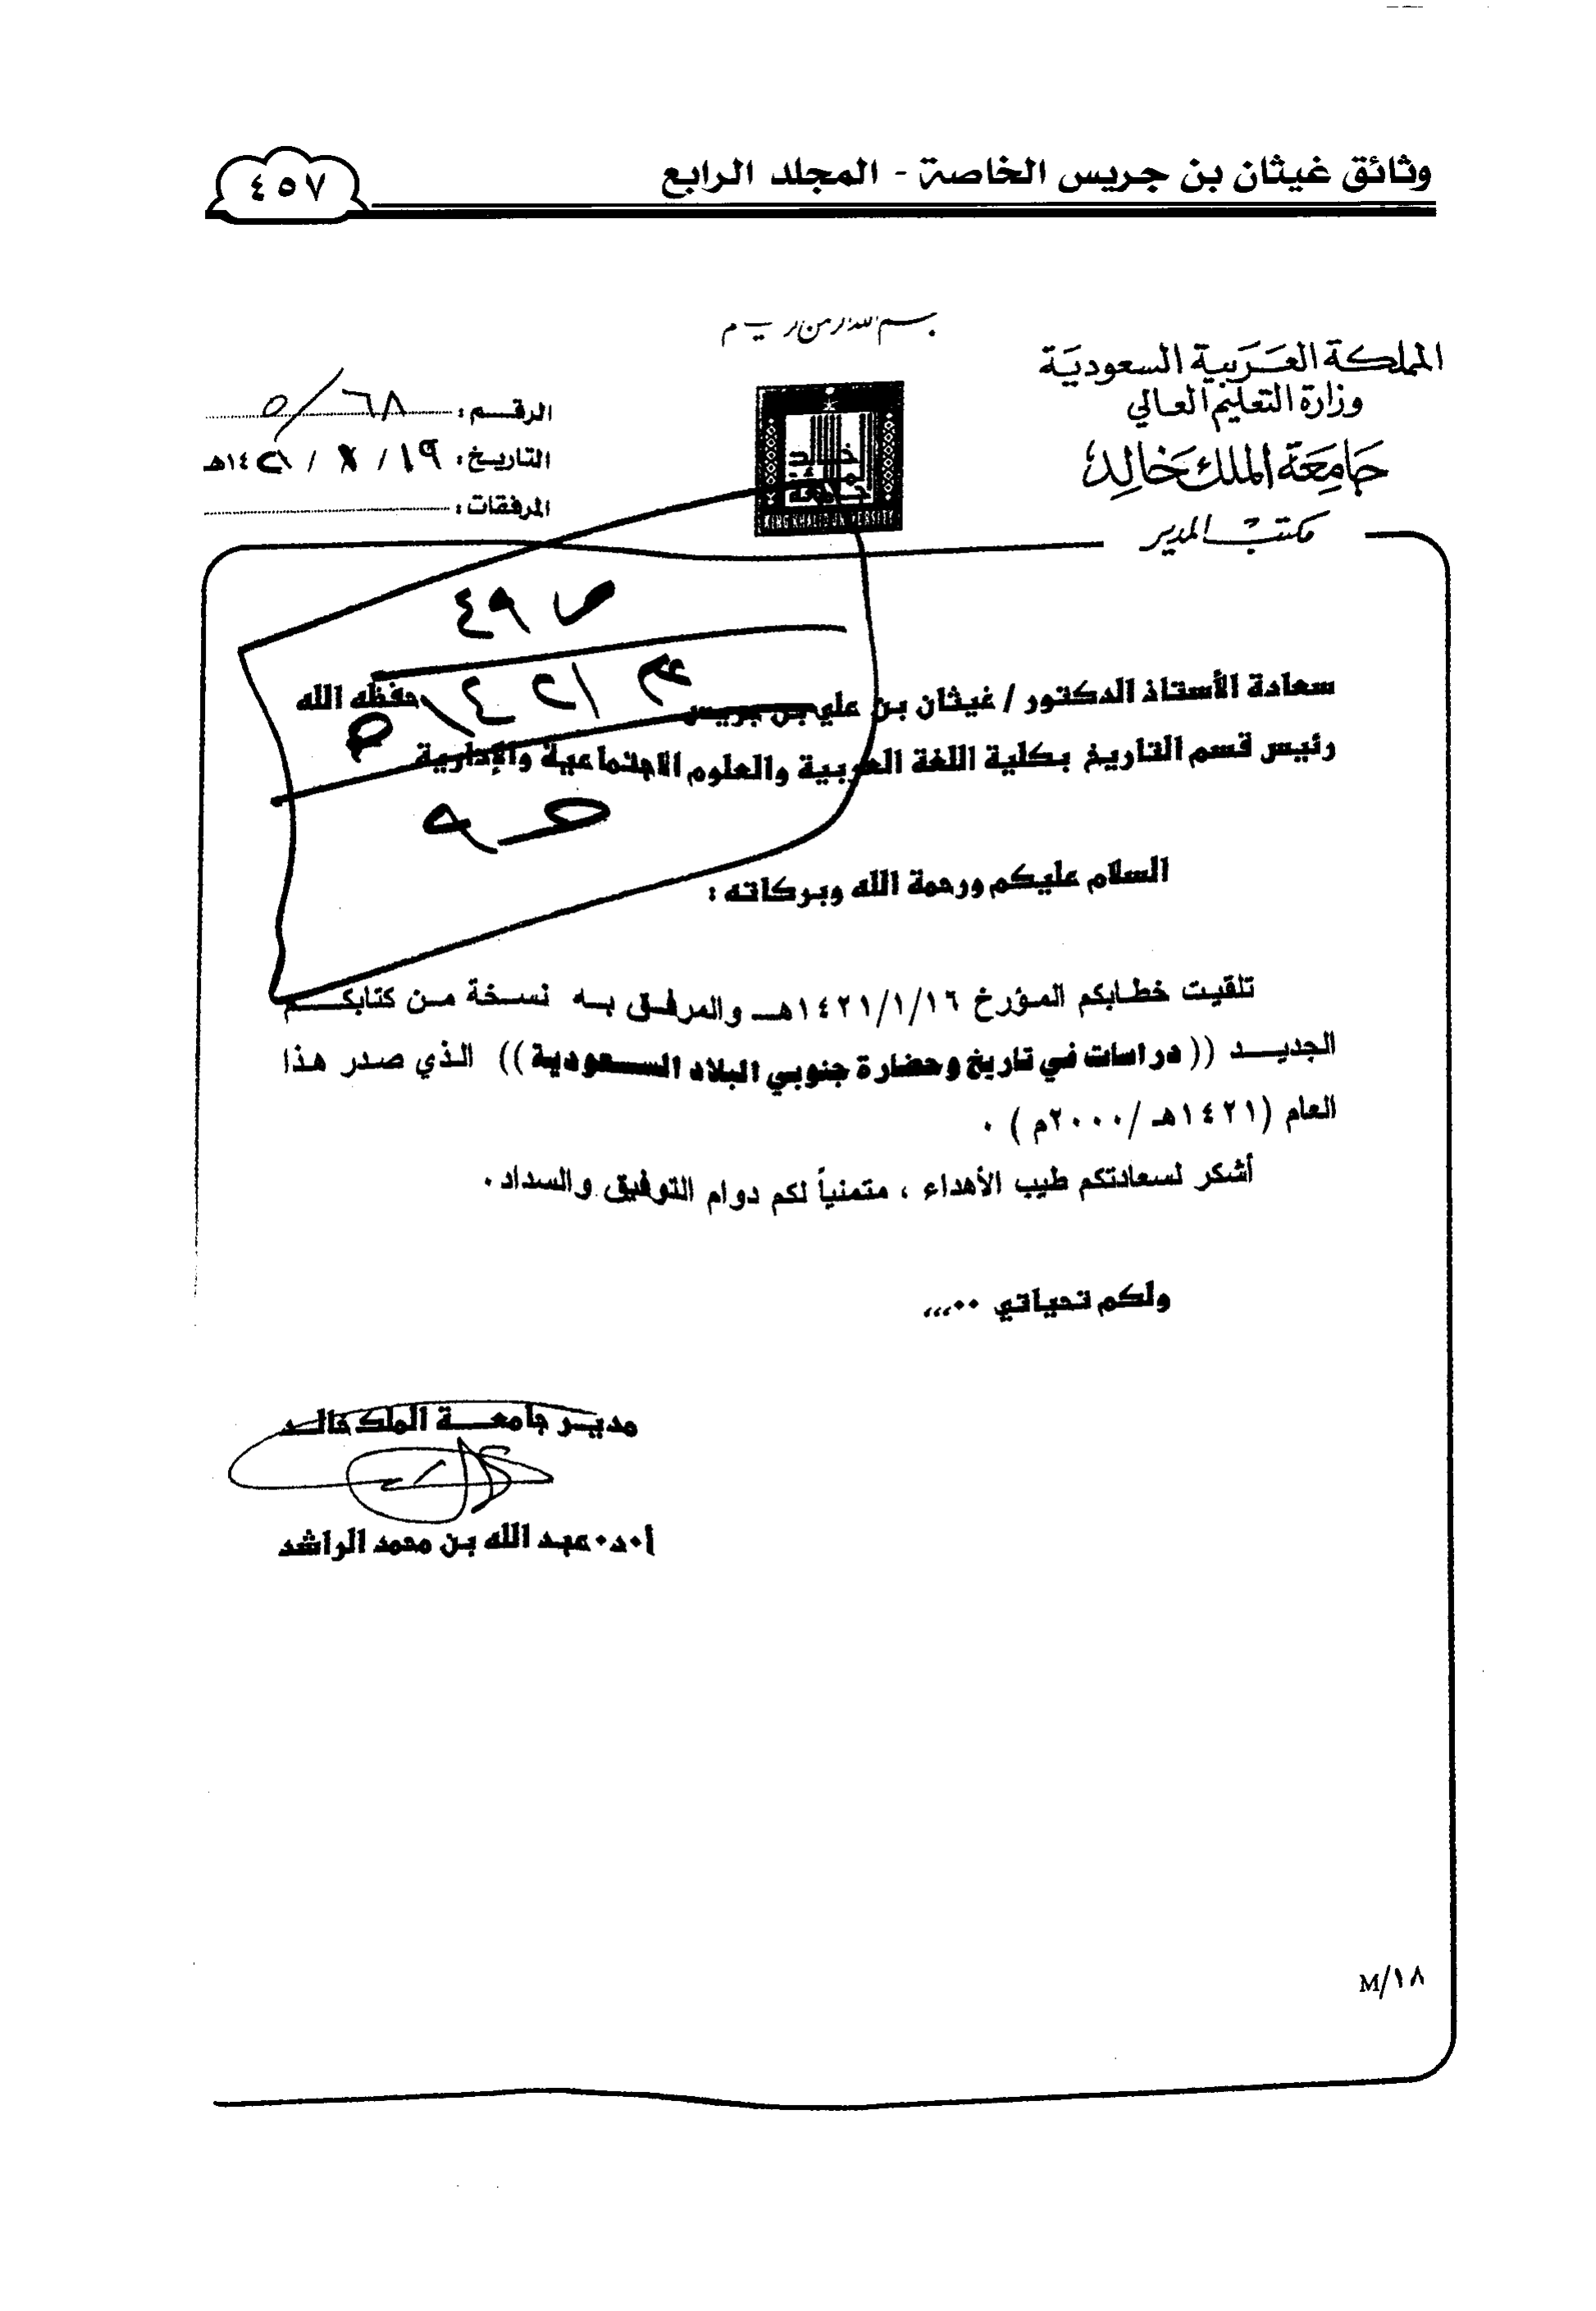 وثائق غيثان بن جريس الخاصة - المجلد الرابع
٤٥٧
المملكة العربية السعودية
وزارة التعليم العالي
جامعة الملك خالد
مكتب المدير
KING KHALID UNIVERSITY
الرقم : ٥/٦٨
التاريخ : ١٩ / / ١٤٢١هـ
المرفقات :
ص ٤٩
سعادة الأستاذ الدكتور / غيثان بن علي بن جريس حفظه الله
رئيس قسم التاريخ بكلية اللغة العربية والعلوم الاجتماعية والإدارية
السلام عليكم ورحمة الله وبركاته :
تلقيت خطابكم المؤرخ ١٤٢١/١/١٦هـ والمرفق به نسخة من كتابكم
الجديد ((دراسات في تاريخ وحضارة جنوبي البلاد السعودية)) الذي صدر هذا
العام (١٤٢١هـ /٢٠٠٠م ) .
أشكر لسعادتكم طيب الأهداء ، متمنياً لكم دوام التوفيق والسداد .
ولكم تحياتي ..،،،
مدير جامعة الملك خالد
أ.د. عبد الله بن محمد الراشد
M/١٨